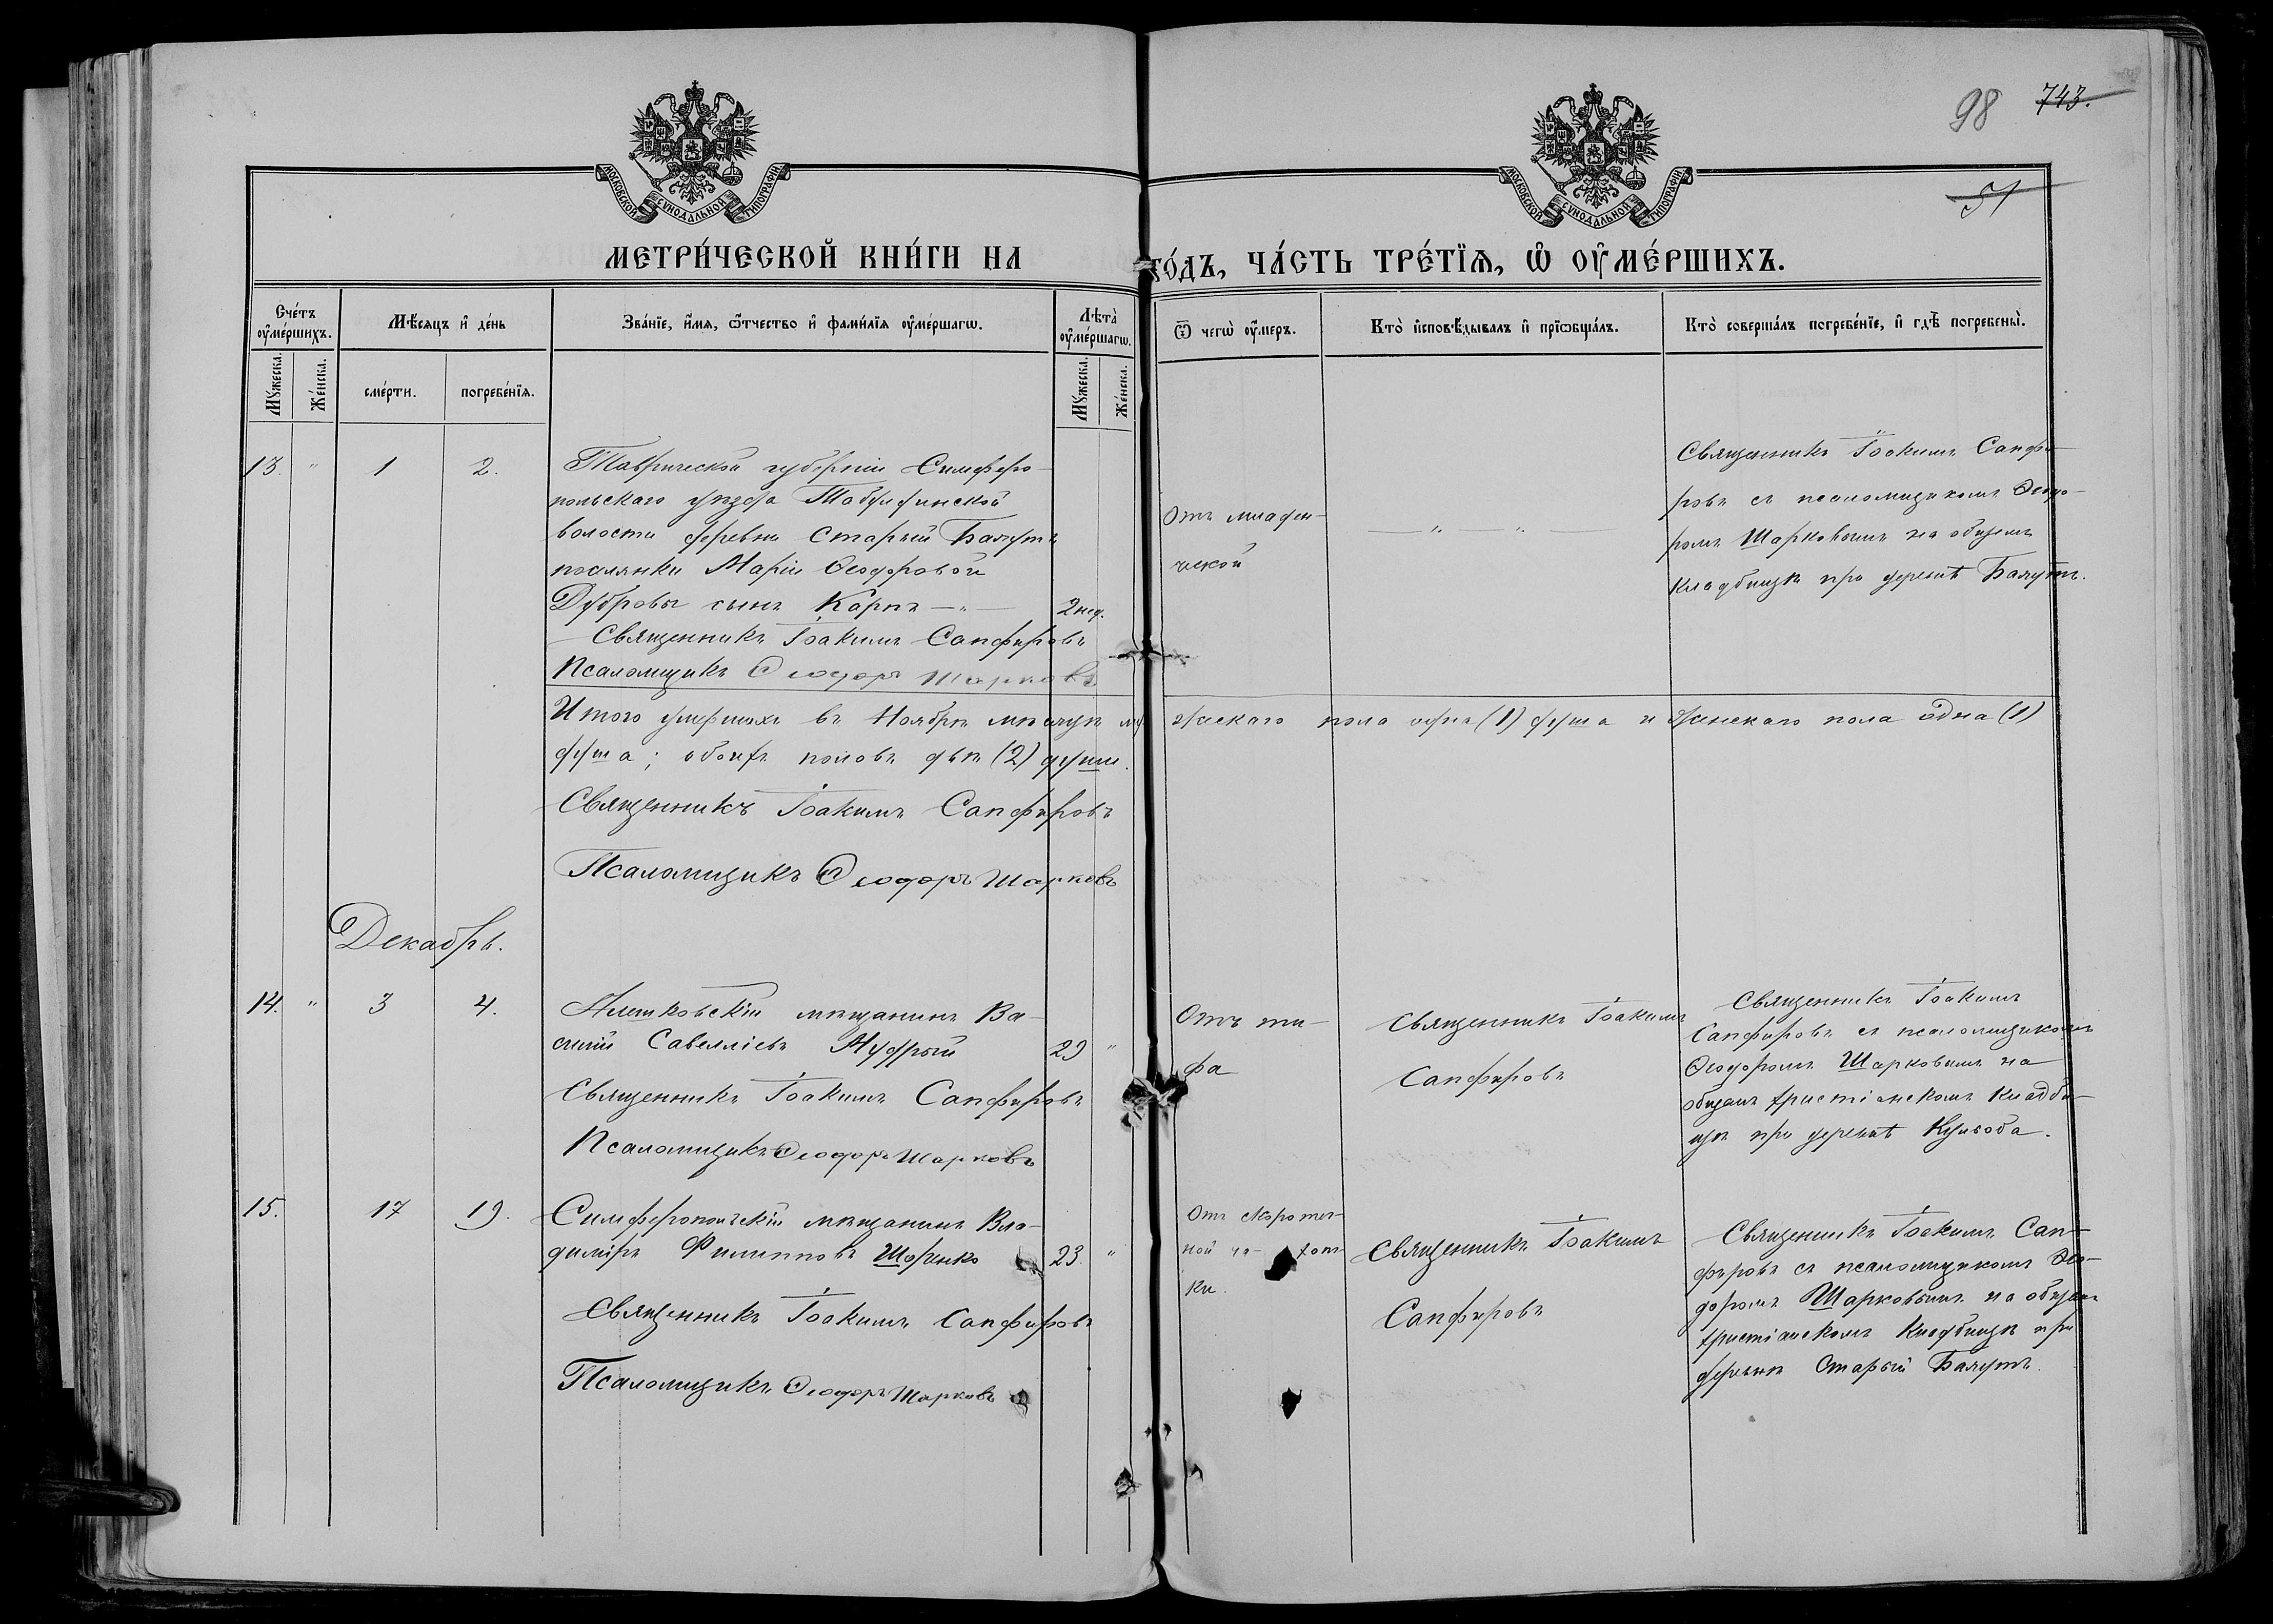 98 743.
51
МОСКОВСКОЙ СУНОДАЛЬНОЙ ТИПОГРАФІИ
МОСКОВСКОЙ СУНОДАЛЬНОЙ ТИПОГРАФІИ
МЕТРИ́ЧЕСКОЙ КНИ́ГИ НА
ГО́ДЪ, ЧА́СТЬ ТРЕ́ТЇѦ, Ѡ ОУМЕ́РШИХЪ.
Сче́тъ оуме́ршихъ.
Мѣ́сѧцъ и де́нь
Зва́нїе, и́мѧ, ѻ́тчество и фами́лїѧ оуме́ршагѡ.
Лѣта̀ оуме́ршагѡ.
Ѿ чегѡ̀ оу́меръ.
Кто̀ и҆сповѣ́дывалъ и҆ прїѡбща́лъ.
Кто̀ соверша́лъ погребе́нїе, и҆ гдѣ̀ погребены̀.
Му́жеска. Же́нска.
сме́рти. погребе́нїѧ.
Му́жеска. Же́нска.
13. " 1 2.
Таврической губерніи Симферо-
польскаго уѣзда Табулдинской
волости деревни Старый Баяутъ
поселянки Маріи Ѳеодоровой
Дубровы сынъ Карпъ — " — 2 нед.
Священникъ Іоакимъ Сапфировъ
Псаломщикъ Ѳеодоръ Шарковъ
Отъ младен-
ческой
— " — " —
Священникъ Іоакимъ Сапфи-
ровъ съ псаломщикомъ Ѳеодо-
ромъ Шарковымъ на общемъ
кладбищѣ при деревнѣ Баяутъ.
Итого умершихъ въ Ноябрѣ мѣсяцѣ му жескаго пола одна (1) душа и женскаго пола одна (1)
душа; обоихъ половъ двѣ (2) души.
Священникъ Іоакимъ Сапфировъ
Псаломщикъ Ѳеодоръ Шарковъ
Декабрь.
14. " 3 4.
Алешковскій мѣщанинъ Ва-
силій Савелліевъ Мудрый 29 "
Священникъ Іоакимъ Сапфировъ
Псаломщикъ Ѳеодоръ Шарковъ
Отъ ти-
фа
Священникъ Іоакимъ
Сапфировъ
Священникъ Іоакимъ
Сапфировъ съ псаломщикомъ
Ѳеодоромъ Шарковымъ на
общемъ христіанскомъ кладби-
щѣ при деревнѣ
15. 17 19.
Симферопольскій мѣщанинъ Вла-
диміръ Филипповъ 23. "
Священникъ Іоакимъ Сапфировъ
Псаломщикъ Ѳеодоръ Шарковъ
Отъ скоротеч-
ной ча-хот
ки.
Священникъ Іоакимъ
Сапфировъ
Священникъ Іоакимъ Сап-
фировъ съ псаломщикомъ Ѳео-
доромъ Шарковымъ на общемъ
христіанскомъ кладбищѣ при
деревнѣ Старый Баяутъ.